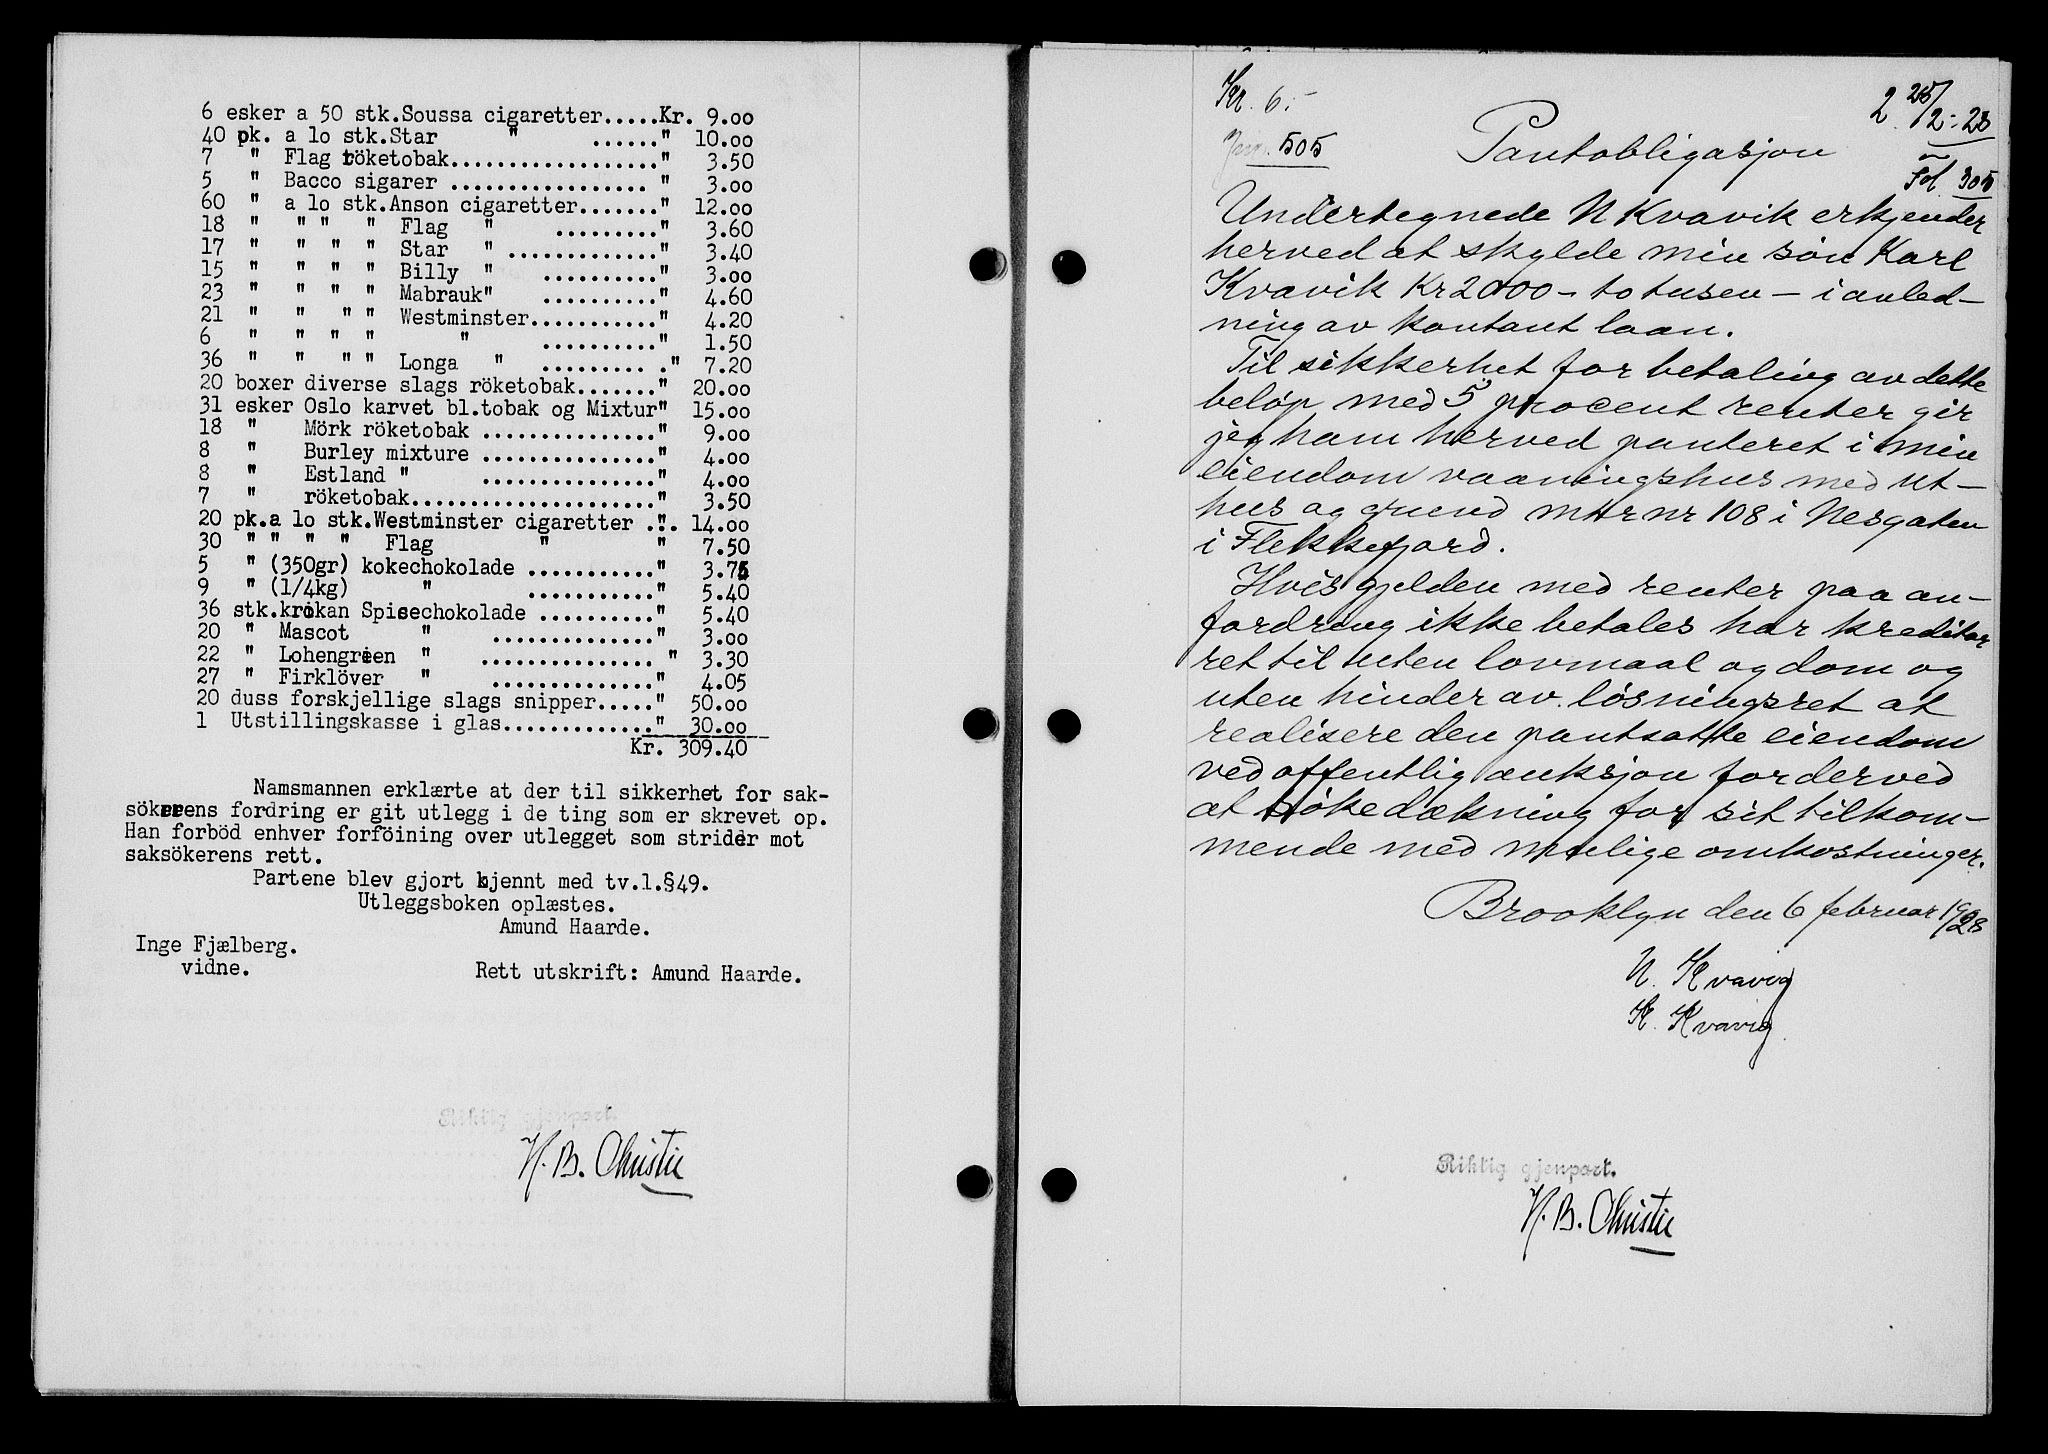 6 esker a 50 stk.Soussa cigaretter.....Kr. 9.00
40 pk. a lo stk.Star " ......" 10.00
7 " Flag röketobak..................." 3.50
5 " Bacco sigarer .................. " 3.00
60 " a lo stk.Anson cigaretter......." 12.00
18 " " " " Flag " .........." 3.60
17 " " " " Star " .............." 3.40
15 " " " " Billy " .........." 3.00
23 " " " " Mabrauk" .........." 4.60
21 " " " " Westminster............" 4.20
6 " " " " " .........." 1.50
36 " " " " Longa " ......... ." 7.20
20 boxer diverse slags röketobak......." 20.00
31 esker Oslo karvet bl.tobak og Mixtur" 15.00
18 " Mörk röketobak ..............." 9.00
8 " Burley mixture ..............." 4.00
8 " Estland " ..............." 4.00
7 " röketobak......................" 3.50
20 pk.a lo stk.Westminster cigaretter .". 14.00
30 " " " " Flag " " 7.50
5 " (350gr) kokechokolade ..........." 3.75
9 " (1/4kg) " ..........." 5.40
36 stk.krokan Spisechokolade .........." 5.40
20 " Mascot " .............." 3.00
22 " Lohengrien " ............... " 3.30
27 " Firklöver " .............." 4.05
20 duss forskjellige slags snipper....." 50.00
1 Utstillingskasse i glas.............." 30.00
Kr. 309.40
Namsmannen erklærte at der til sikkerhet for sak-
sökerens fordring er git utlegg i de ting som er skrevet op.
Han forböd enhver forföining over utlegget som strider mot
saksökerens rett.
Partene blev gjort kjennt med tv.l.§49.
Utleggsboken oplæstes.
Amund Haarde.
Inge Fjælberg.
vidne.
Rett utskrift: Amund Haarde.
Riktig gjenpart.
H. B. Christie
Kr. 6.-
2 25/2-28
505
Pantobligasjon
Fol. 305
Undertegnede N Kvavik erkjender
herved at skylde min søn Karl
Kvavik Kr 2000 - to tusen - i anled-
ning av kontant laan.
Til sikkerhet for betaling av dette
beløp med 5 procent renter gir
jeg ham herved panteret i min
eiendom vaaningshus med ut-
hus og grund mtr nr 108 i Nesgaten
i Flekkefjord.
Hvis gjelden med renter paa an-
fordring ikke betales har kreditor
ret til uten lovmaal og dom og
uten hinder av løsningsret at
realisere den pantsatte eiendom
ved offentlig auksjon for derved
at søke dækning for sit tilkom-
mende med mulige omkostninger.
Brooklyn den 6 februar 1928
N. Kvavig
K. Kvavig
Riktig gjenpart.
H. B. Christie